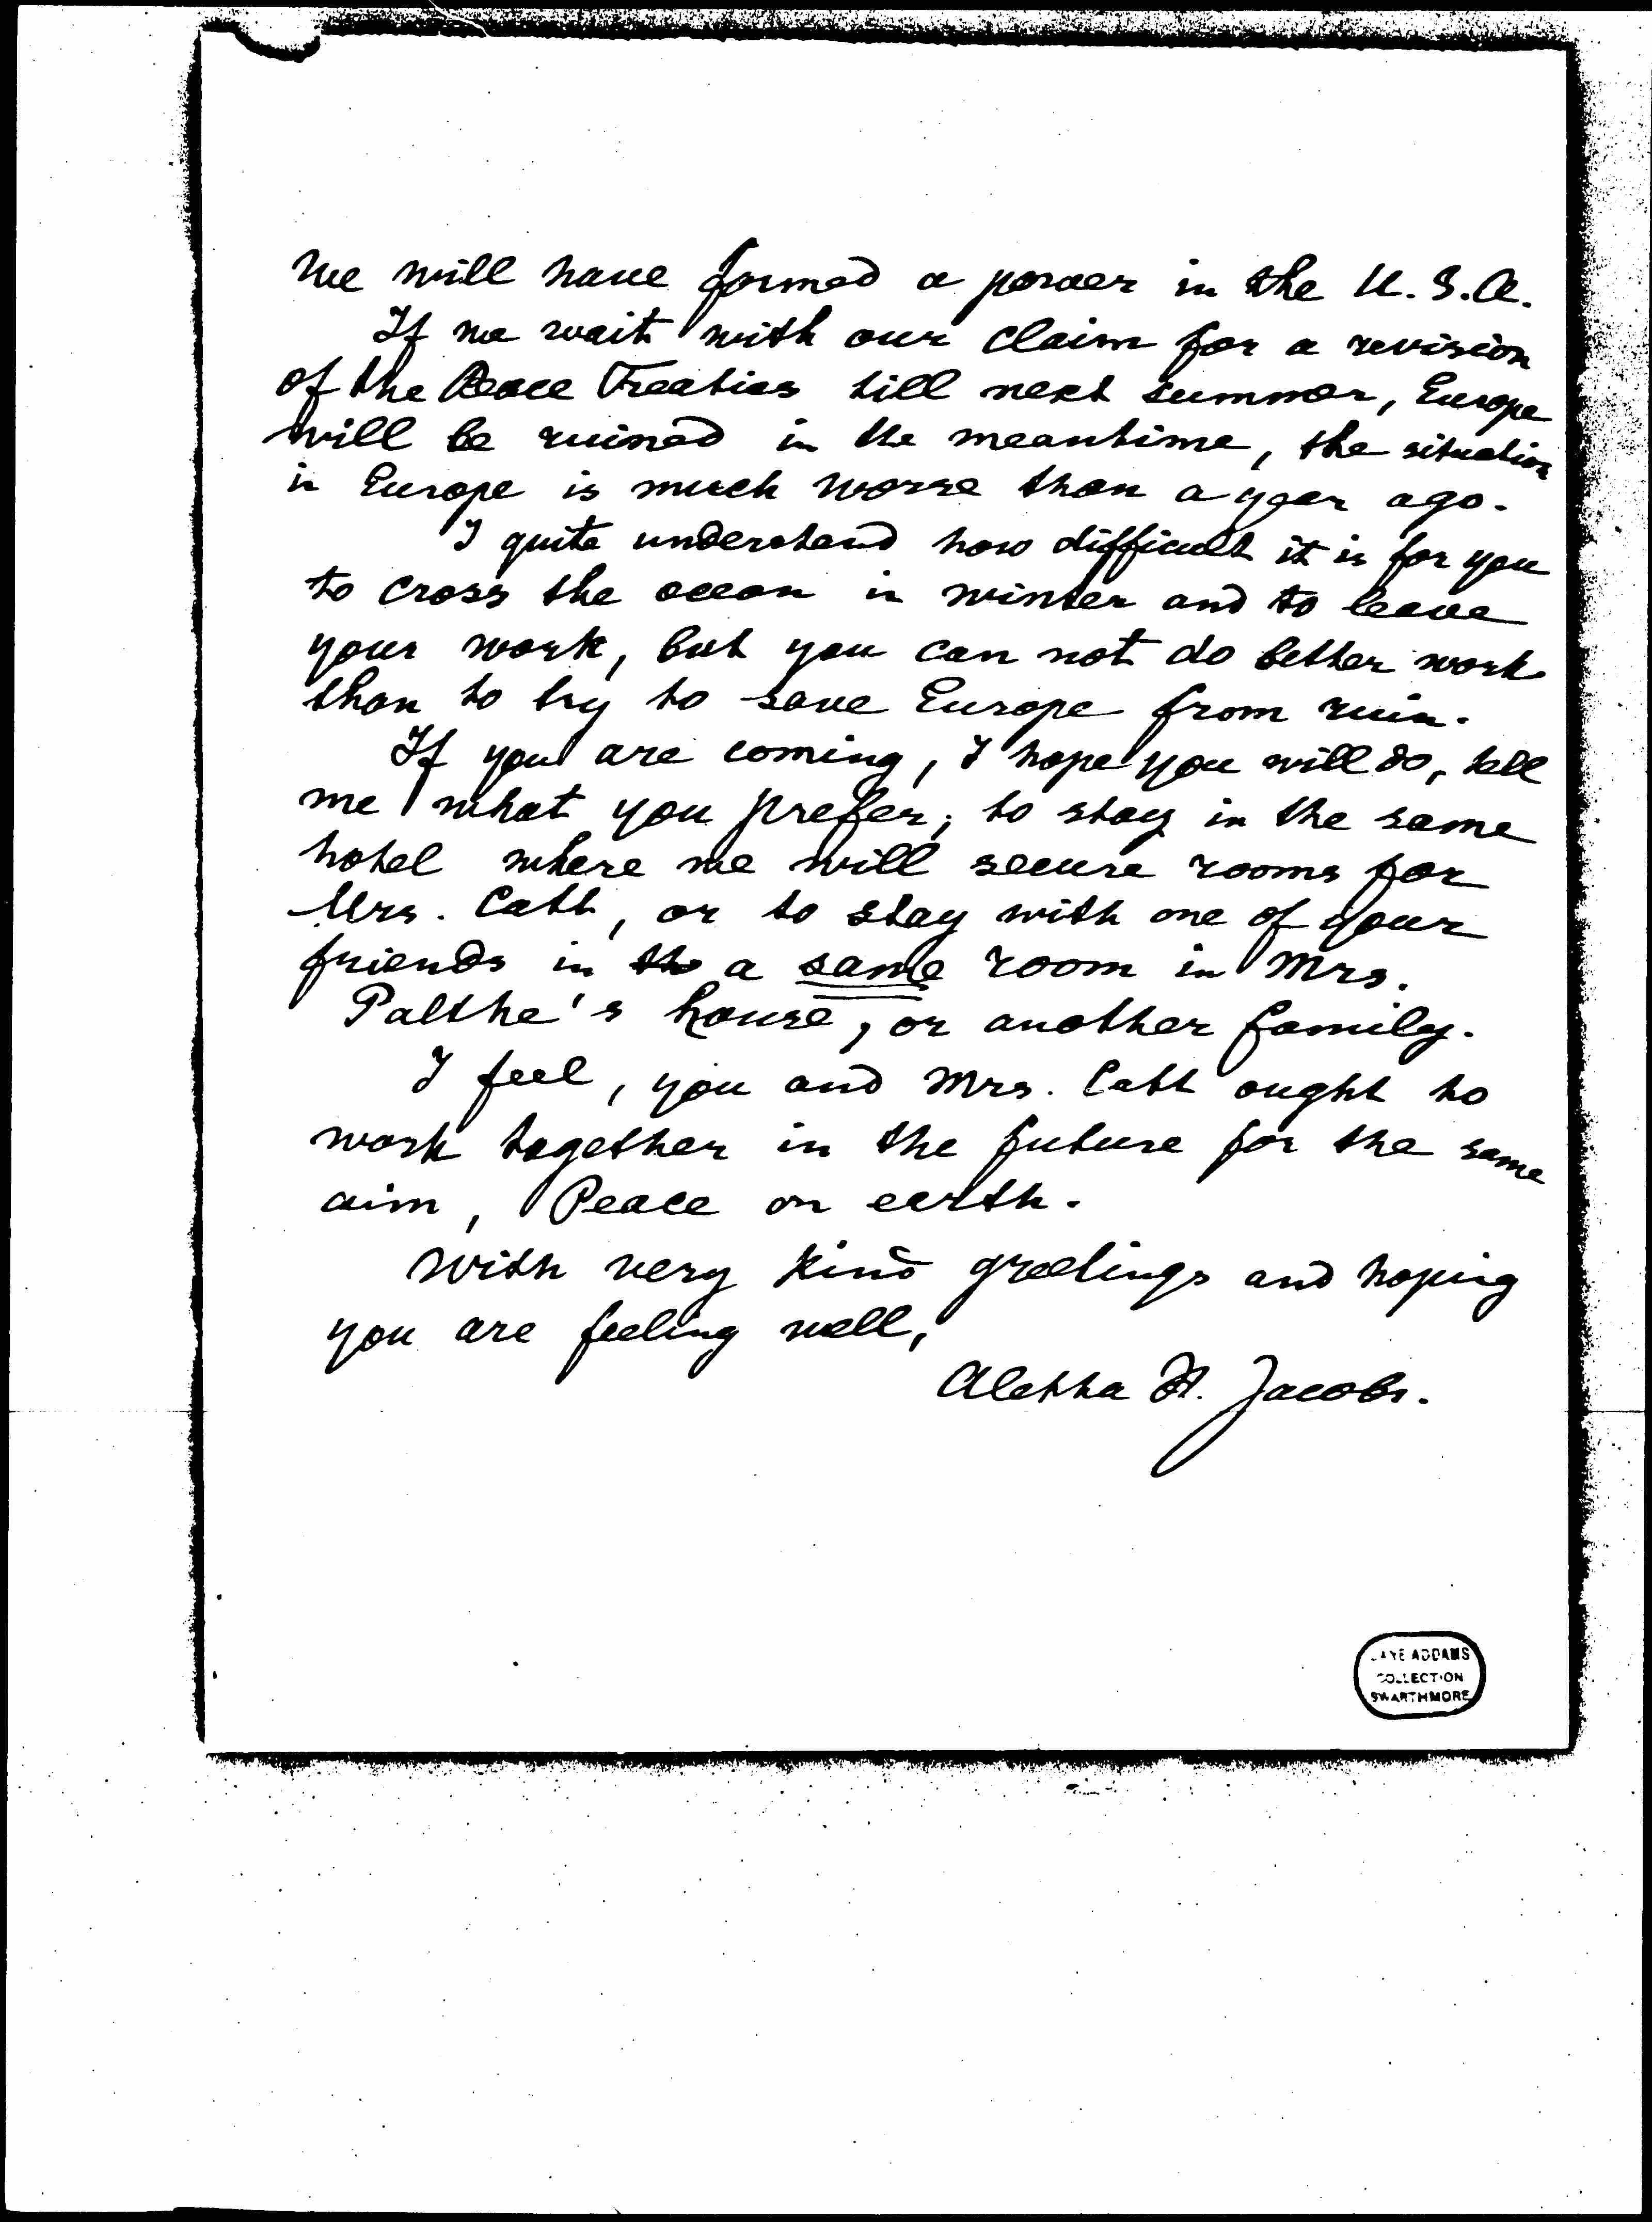 We will have formed a power in the U.S.A.
If we wait with our claim for a revision
of the Peace Treaties till next summer, Europe
will be ruined in the meantime, the situation
in Europe is much worse than a year ago.
I quite understand how difficult it is for you
to cross the ocean in winter and to leave
your work, but you can not do better work
than to try to save Europe from ruin.
If you are coming, I hope you will do, tell
me what you prefer; to stay in the same
hotel where we will secure rooms for
Mrs. Catt, or to stay with one of your
friends in the a same room in Mrs.
Palthe's house, or another family.
I feel, you and Mrs. Catt ought to
work together in the future for the same
aim, Peace on earth.
With very kind greetings and hoping
you are feeling well,
Aletta H. Jacobs.
JANE ADDAMS
COLLECTION
SWARTHMORE